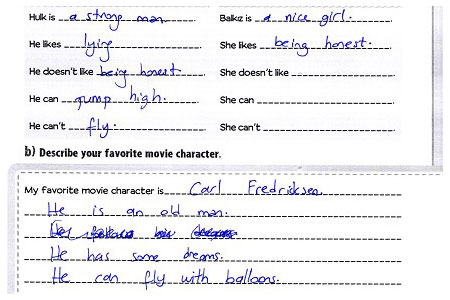 Hulk is a strong man.
Balkız is a nice girl.
He likes lying
She likes being honest.
He doesn't like being honest
She doesn't like
He can gump high.
She can
He can't fly.
She can't
b) Describe your favorite movie character.
My favorite movie character is Carl Fredricksen.
He is an old man.
He has some dreams.
He can fly with balloons.